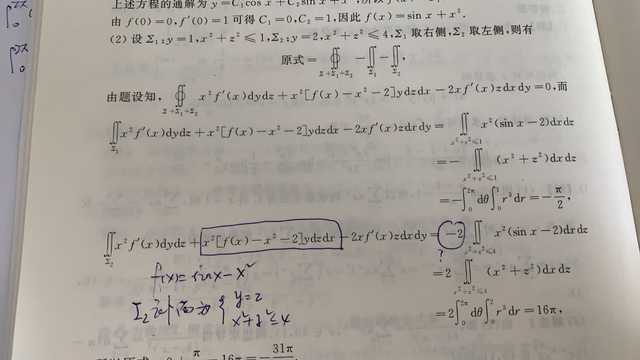 上述方程的通解为 y=C₁cos x+C₂sin x+x²,所以
由 f(0)=0,f′(0)=1 可得 C₁=0,C₂=1,因此 f(x)=sin x+x².
(2) 设 Σ₁:y=1,x²+z²≤1,Σ₂:y=2,x²+z²≤4,Σ₁ 取右侧,Σ₂ 取左侧,则有
原式=∯_{Σ+Σ₁+Σ₂}-∬_{Σ₁}-∬_{Σ₂},
由题设知,∯_{Σ+Σ₁+Σ₂} x²f′(x)dydz+x²[f(x)-x²-2]ydzdx-2xf′(x)zdxdy=0,而
∬_{Σ₁}x²f′(x)dydz+x²[f(x)-x²-2]ydzdx-2xf′(x)zdxdy=∬_{x²+z²≤1}x²(sin x-2)dxdz
=-∬_{x²+z²≤1}(x²+z²)dxdz
=-∫₀^{2π}dθ∫₀¹r³dr=-π/2,
∬_{Σ₂}x²f′(x)dydz+x²[f(x)-x²-2]ydzdx-2xf′(x)zdxdy=-2∬_{x²+z²≤4}x²(sin x-2)dxdz
?
f(x)=sinx-x²
=2∬_{x²+z²≤4}(x²+z²)dxdz
y=2
x²+z²≤4
=2∫₀^{2π}dθ∫₀²r³dr=16π,